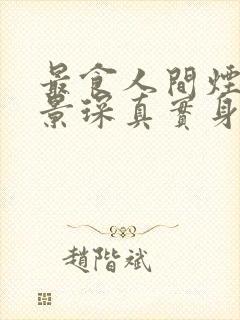 最食人間煙
景琛真實身
趙階斌